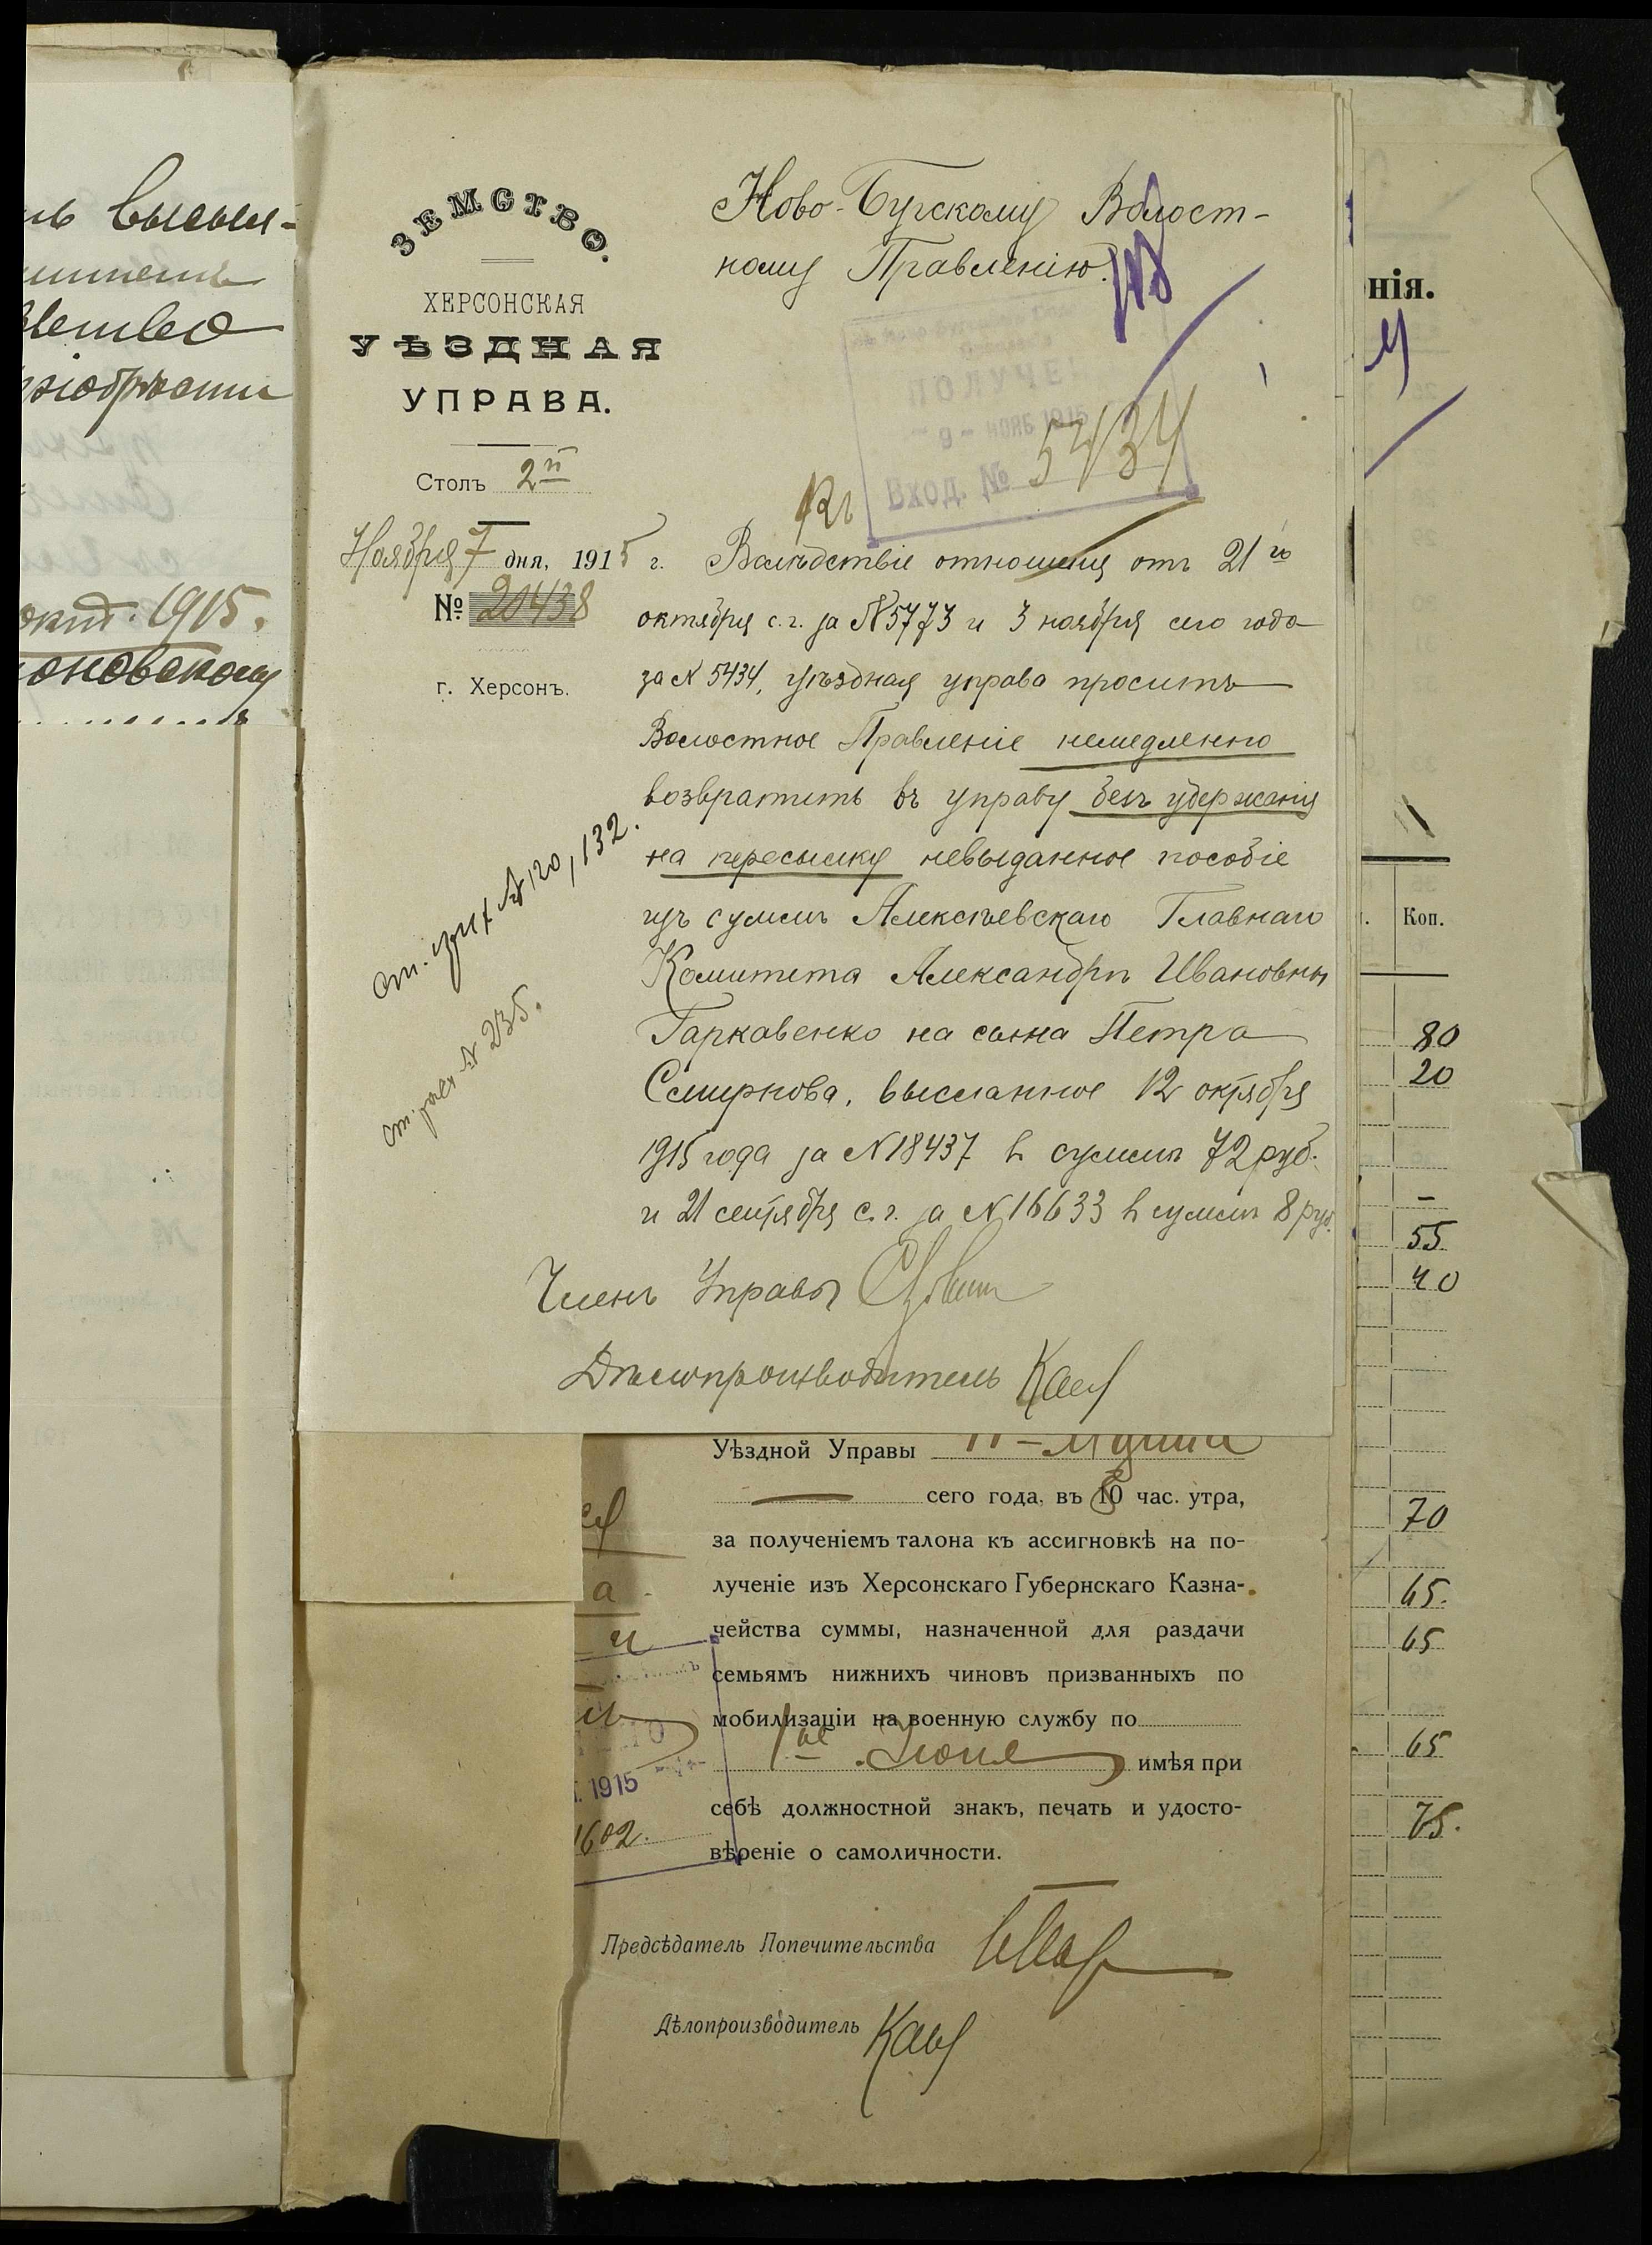 ЗЕМСТВО.
ХЕРСОНСКАЯ
УѢЗДНАЯ
УПРАВА.
Столъ 2й
Ноября 7 дня, 1915 г.
№ 20438
г. Херсонъ.
Ново-Бугскому Волост-
ному Правленію.
ПОЛУЧЕ
- 9 - НОЯБ 1915
Вход. № 5434
Вслѣдствіе отношенія отъ 21го
октября с. г. за № 5773 и 3 ноября сего года
за № 5434, уѣздная управа проситъ
Волостное Правленіе немедленно
возвратить въ управу безъ удержанія
на пересылку невыданное пособіе
изъ суммъ Алексѣевскаго Главнаго
Комитета Александрѣ Ивановнѣ
Гаркавенко на сына Петра
Смирнова, высланное 12 октября
1915 года за № 18437 въ суммѣ 72 руб.
и 21 сентября с. г. за № 16633 въ суммѣ 8 руб.
Членъ Управы
Дѣлопроизводитель
ст. прих № 120, 132.
ст. расх № 235.
Уѣздной Управы
сего года, въ 10 час. утра,
за полученіемъ талона къ ассигновкѣ на по-
лученіе изъ Херсонскаго Губернскаго Казна-
чейства суммы, назначенной для раздачи
семьямъ нижнихъ чиновъ призванныхъ по
мобилизаціи на военную службу по
1ое Іюня имѣя при
себѣ должностной знакъ, печать и удосто-
вѣреніе о самоличности.
Предсѣдатель Попечительства
Дѣлопроизводитель
1915
1602.
окт. 1915.
нія.
Коп.
80
20
-
55
40
70
65.
65
65
75.